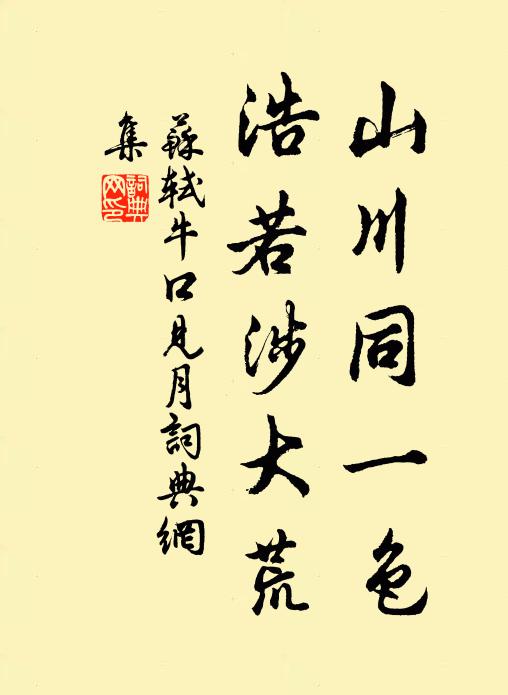 山川同一色
浩若涉大荒
蘇軾牛口見月詞典網
集
詞典
網印